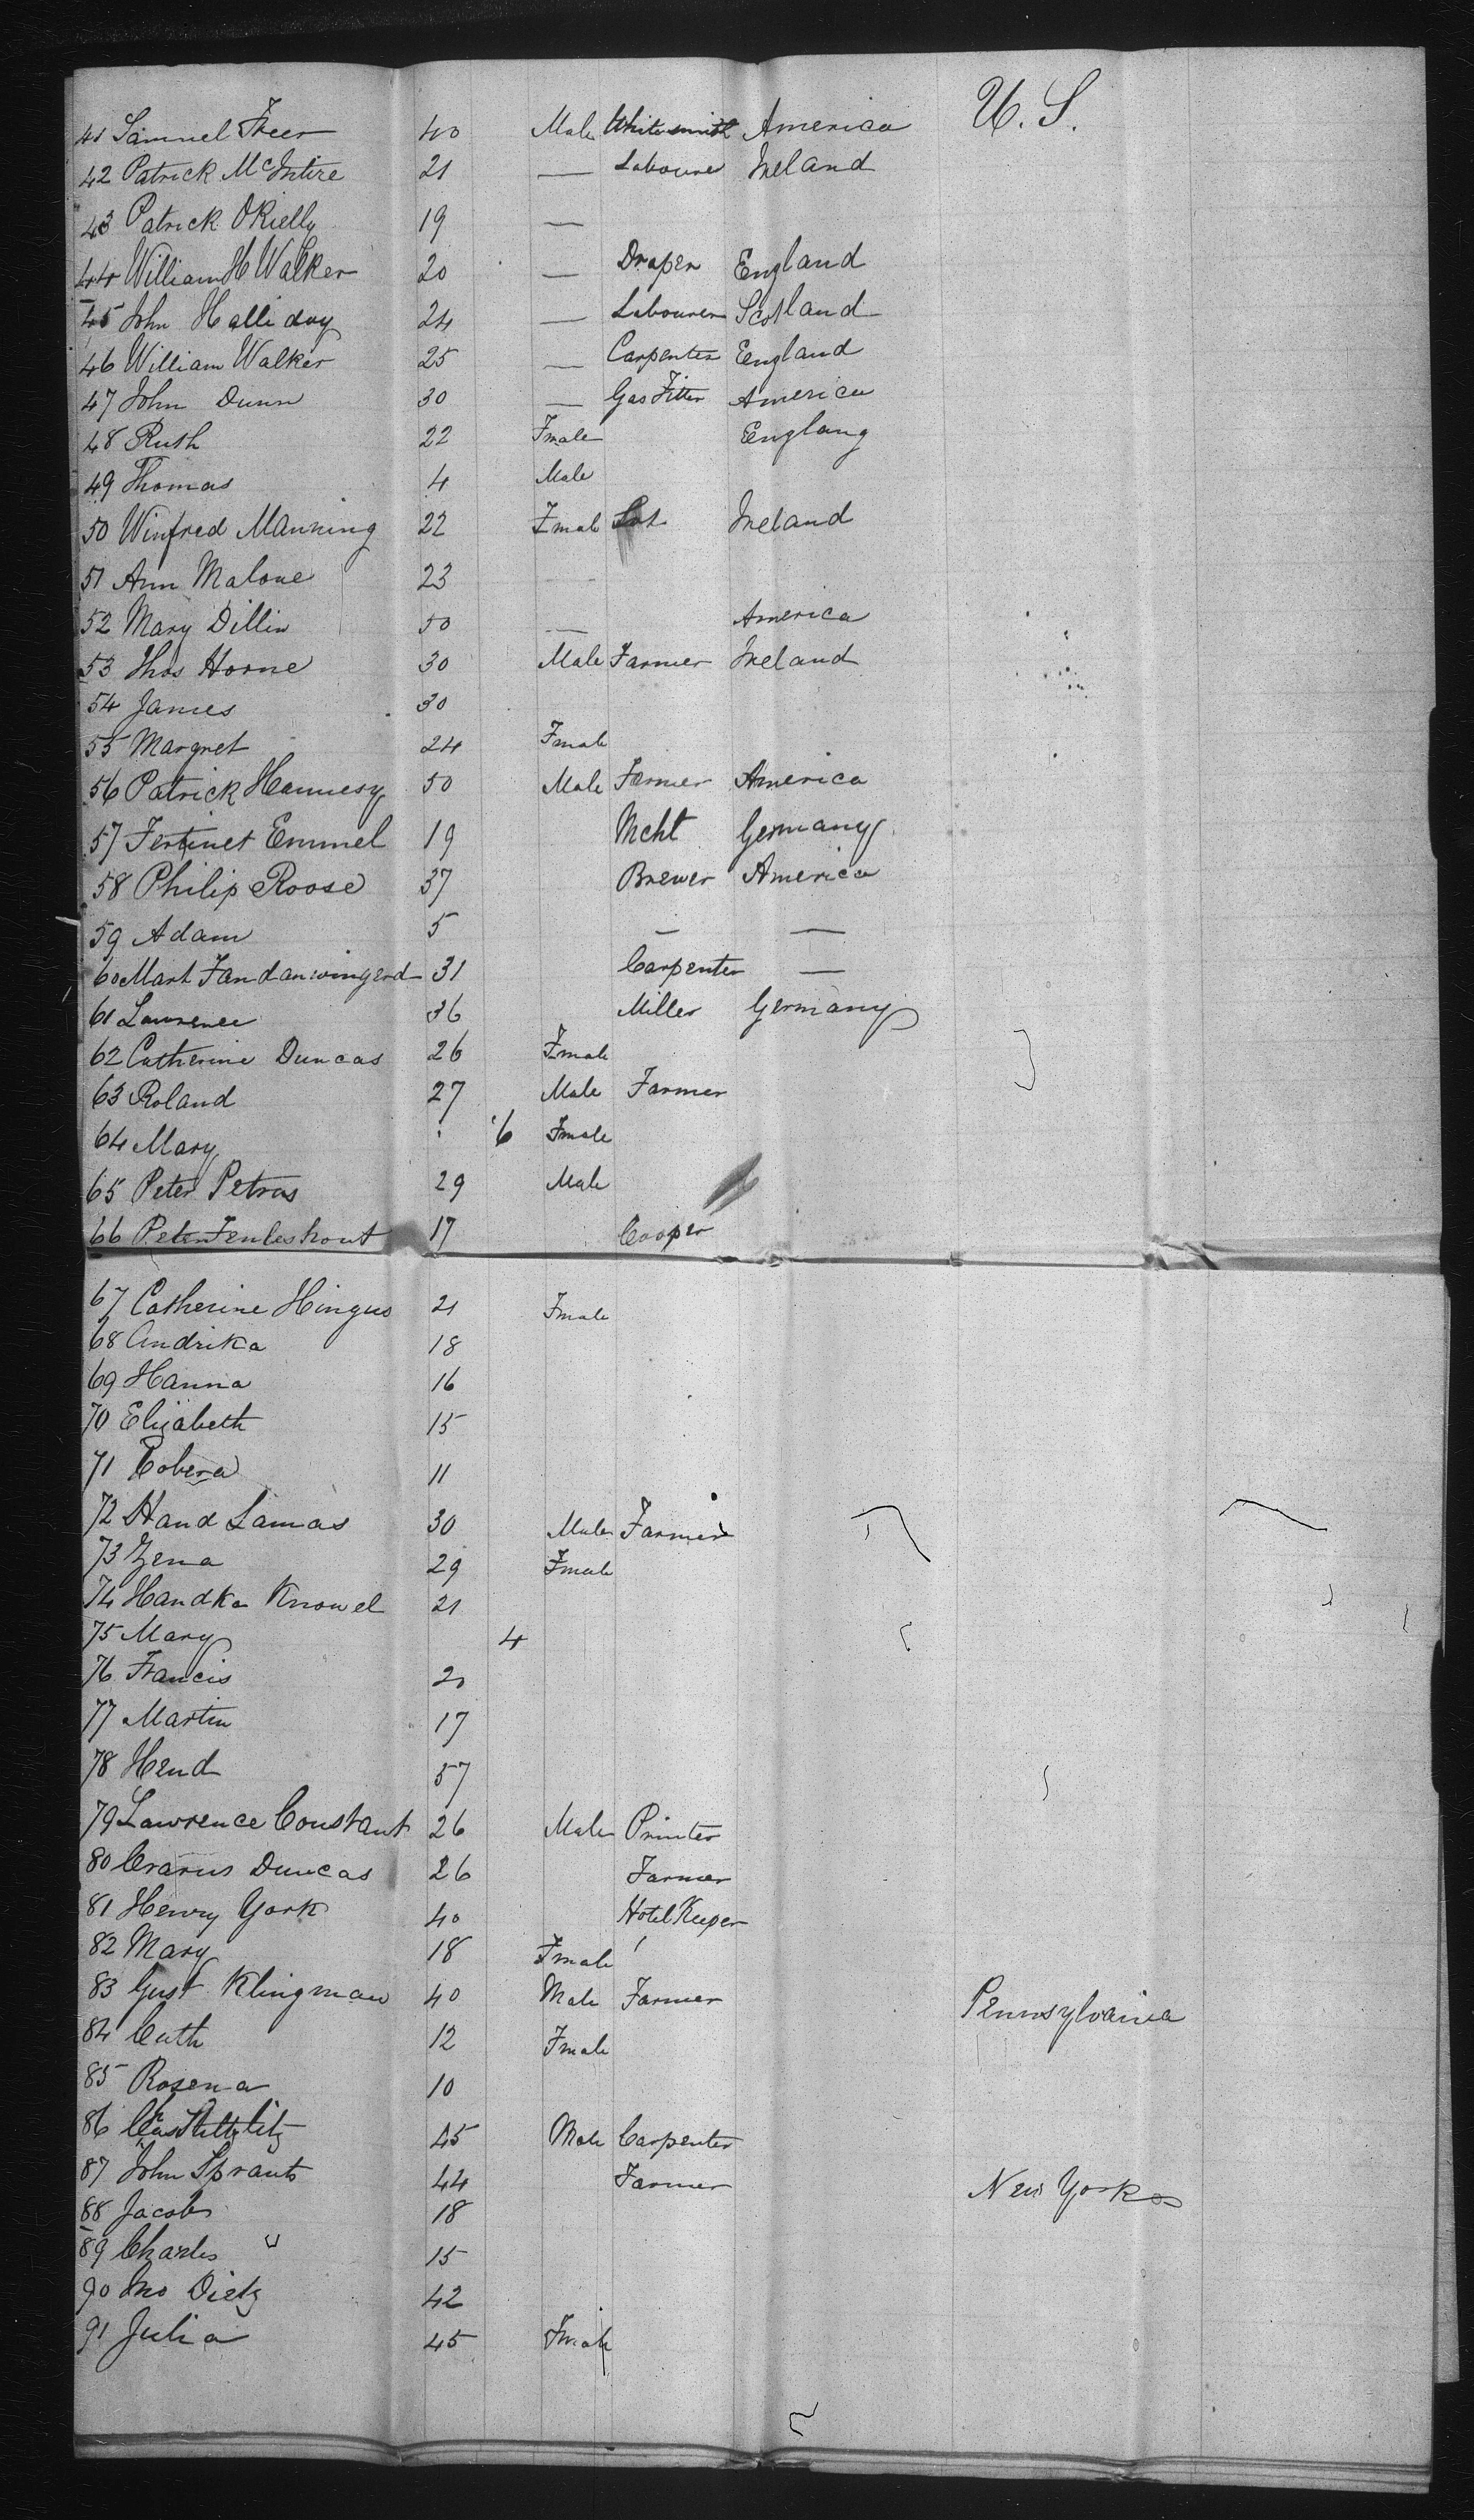 U. S.
41 Samuel Freer 40 Male White smith America
42 Patrick McIntire 21 — Labourer Ireland
43 Patrick OKielly 19 —
44 William H Walker 20 — Draper England
45 John Halliday 24 — Labourer Scotland
46 William Walker 25 — Carpenter England
47 John Dunn 30 — Gas Fitter America
48 Ruth 22 Fmale Englang
49 Thomas 4 Male
50 Winfred Manning 22 Fmale Ireland
51 Ann Malone 23 —
52 Mary Dillin 50 — America
53 Thos Horne 30 Male Farmer Ireland
54 James 30
55 Margret 24 Fmale
56 Patrick Hannesy 50 Male Farmer America
57 Fertinet Emmel 19 Mcht Germany
58 Philip Roose 37 Brewer America
59 Adam 5 — —
60 Mart Fandanwingerd 31 Carpenter —
61 Lawrence 36 Miller Germany
62 Catherine Duncas 26 Fmale
63 Roland 27 Male Farmer
64 Mary 6 Fmale
65 Peter Petrus 29 Male
66 Peter Fenleshout 17 Cooper
67 Catherine Hingus 21 Fmale
68 Andrika 18
69 Hanna 16
70 Elizabeth 15
71 Cobera 11
72 Hand Lamas 30 Male Farmer
73 Zena 29 Fmale
74 Handka Knowel 21
75 Mary 4
76 Francis 21
77 Martin 17
78 Hend 57
79 Lawrence Constant 26 Male Printer
80 Crarus Duncas 26 Farmer
81 Henry York 40 Hotel Keeper
82 Mary 18 Fmale
83 Gust Klingman 40 Male Farmer Pennsylvania
84 Cath 12 Fmale
85 Rosena 10
86 45 Male Carpenter
87 John Sprants 44 Farmer New York
88 Jacob 18
89 Charles " 15
90 Jno Dietz 42
91 Julia 45 Fmale